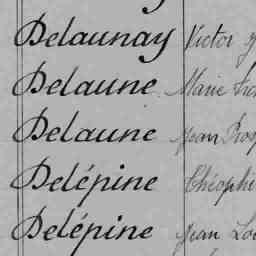 Delaunay Victor
Delaune Marie
Delaune Jean
Delépine
Delépine Jean